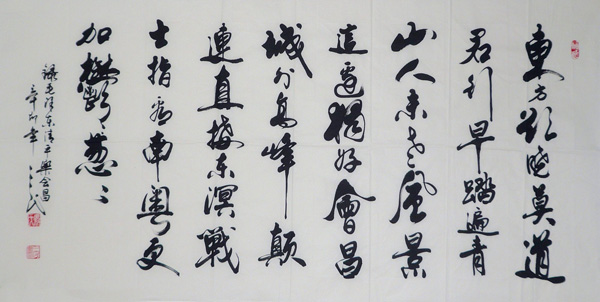 東方欲晓莫道
君行早踏遍青
山人未老風景
這邊獨好會昌
城外高峰颠
連直接东溟戰
士指看南粵更
加鬱鬱葱〻
録毛澤东清平樂會昌
辛卯年